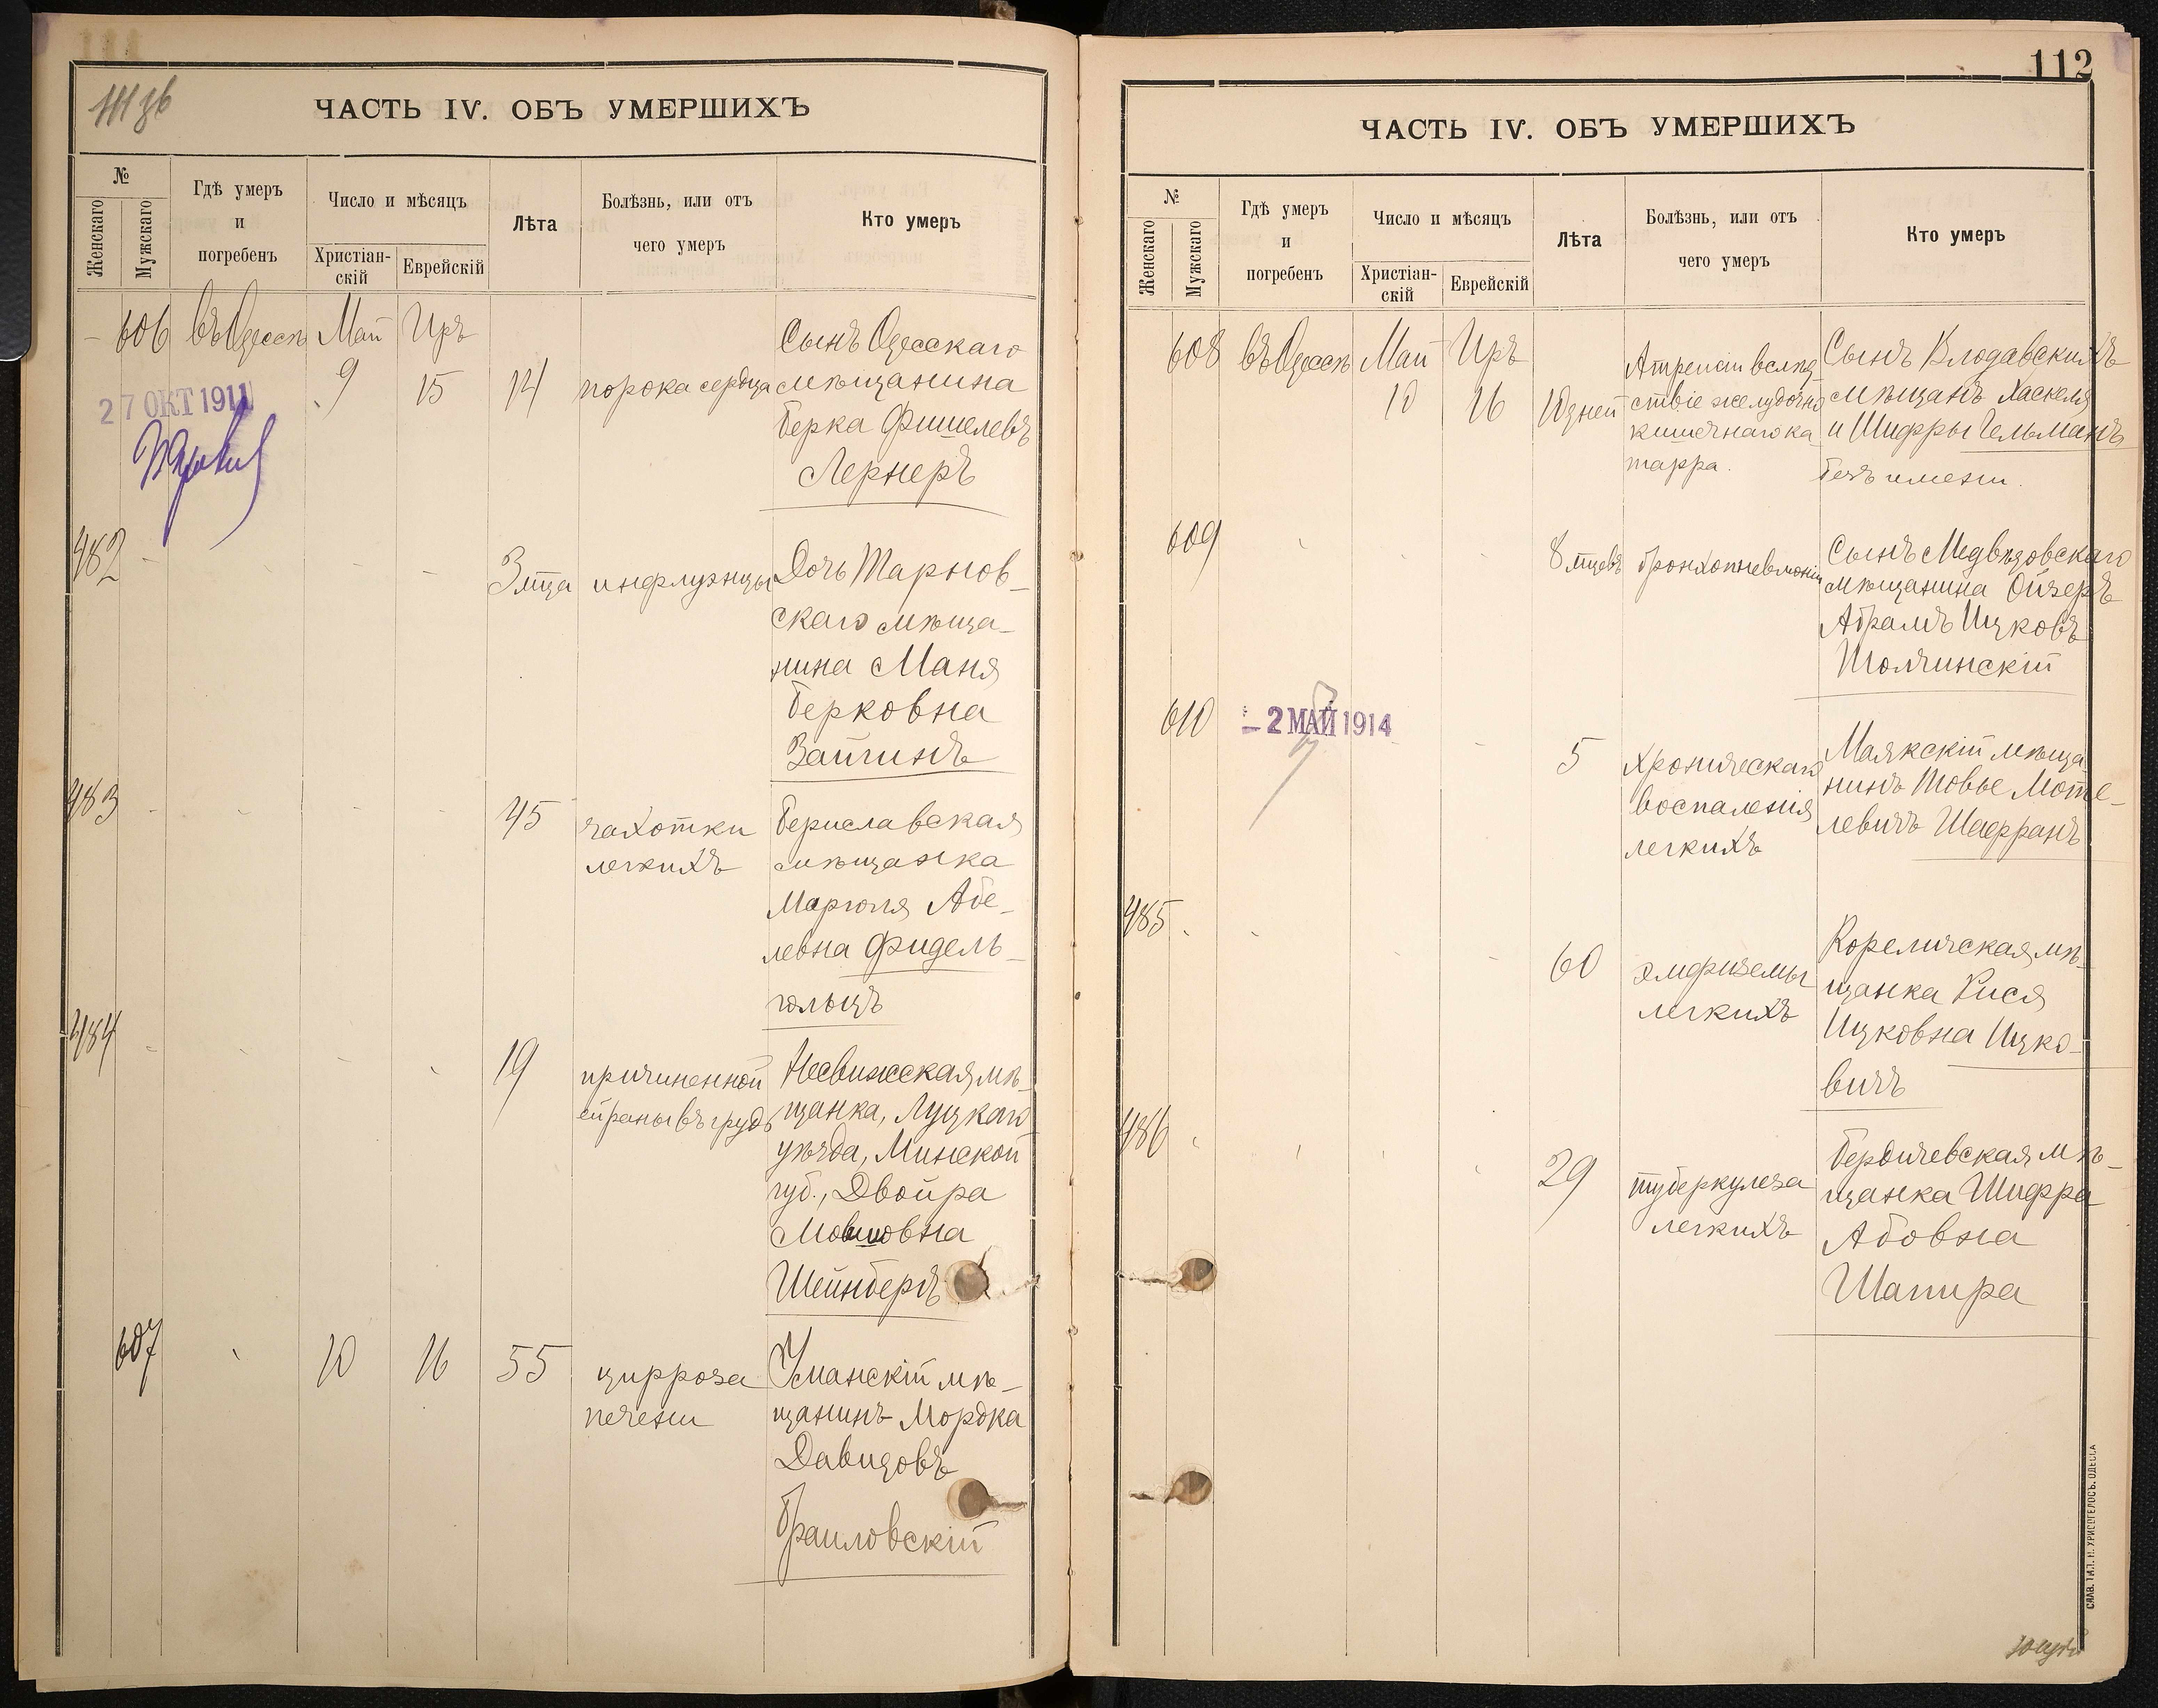 111 об
ЧАСТЬ IV. ОБЪ УМЕРШИХЪ
№
Женскаго
Мужскаго
Гдѣ умеръ
и
погребенъ
Число и мѣсяцъ
Христіан-
скій
Еврейскій
Лѣта
Болѣзнь, или отъ
чего умеръ
Кто умеръ
606 въ Одессѣ Май Иръ
9 15 14 порока сердца
Сынъ Одесскаго
мѣщанина
Берка Фишелевъ
Лернеръ
27 ОКТ 1911
482
3 мца инфлуэнцы
Дочь Тарнов-
скаго мѣща-
нина Маня
Берковна
Зайчинъ
483
45 чахотки
легкихъ
Бериславская
мѣщанка
Марголя Абе-
левна Фидель-
гольцъ
484
19 причиненной
ей раны въ грудь
Несвижская мѣ-
щанка, Луцкаго
уѣзда, Минской
губ., Двойра
Мовшовна
Шейнбергъ
607 10 16 55 цирроза
печени
Уманскій мѣ-
щанинъ Мордка
Давидовъ
Браиловскій
112
ЧАСТЬ IV. ОБЪ УМЕРШИХЪ
№
Женскаго
Мужскаго
Гдѣ умеръ
и
погребенъ
Число и мѣсяцъ
Христіан-
скій
Еврейскій
Лѣта
Болѣзнь, или отъ
чего умеръ
Кто умеръ
608 въ Одессѣ Май Иръ
10 16 10 дней
Атрепсіи вслѣд
ствіе желудочно
кишечнаго ка
тарра.
Сынъ Влодавскихъ
мѣщанъ Хаскеля
и Шифры Гельманъ
безъ имени.
609
8 мцевъ бронхопневмоніи
Сынъ Медвѣдовскаго
мѣщанина Ойзеръ
Абрамъ Ицковъ
Толчинскій
610
- 2 МАЙ 1914
5 хроническаго
воспаленія
легкихъ
Маякскій мѣща
нинъ Товье Моте-
левичъ Шафранъ
485
60 эмфиземы
легкихъ
Кореличская мѣ-
щанка Рися
Ицковна Ицко-
вичъ
486
29 туберкулеза
легкихъ
Бердичевская мѣ-
щанка Шифра
Абовна
Шапира
СЛАВ. ТИП. Н. ХРИСОГЕЛОСЪ. ОДЕССА